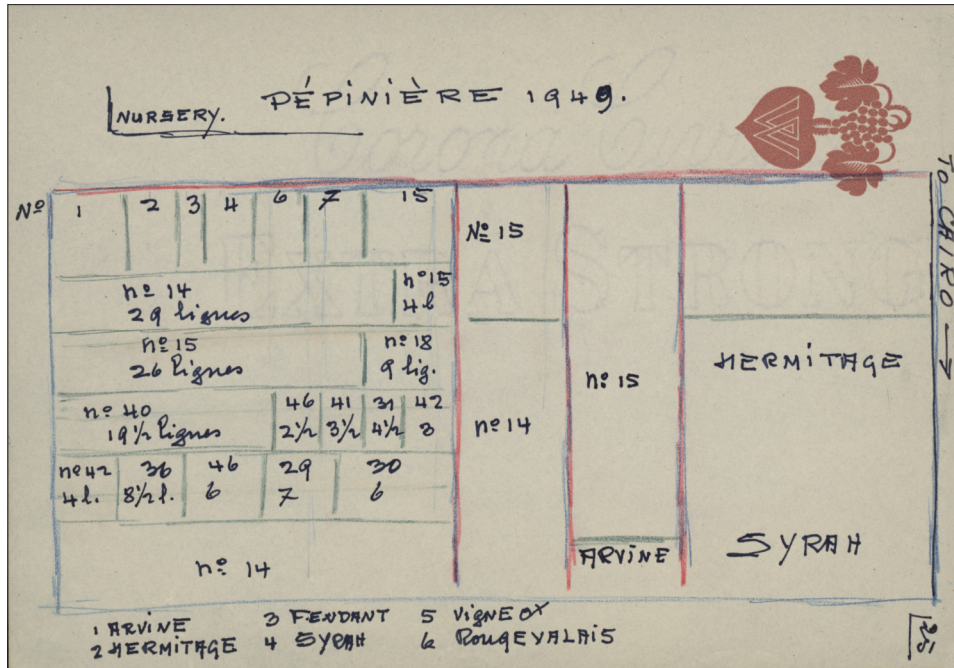 NURSERY. PÉPINIÈRE 1949.
TO CAIRO →
Nº 1 2 3 4 6 7 15
nº 14
29 lignes
nº 15
4 l
nº 15
26 lignes
nº 18
9 lig.
nº 40
19 1/2 lignes
46
2 1/2
41
3 1/2
31
4 1/2
42
8
nº 42
4 l.
36
8 1/2 l.
46
6
29
7
30
6
nº 14
Nº 15
nº 14
nº 15
ARVINE
HERMITAGE
SYRAH
1 ARVINE 3 FENDANT 5 VIGNE
2 HERMITAGE 4 SYRAH 6 ROUGE VALAIS
EXTRA STRONG